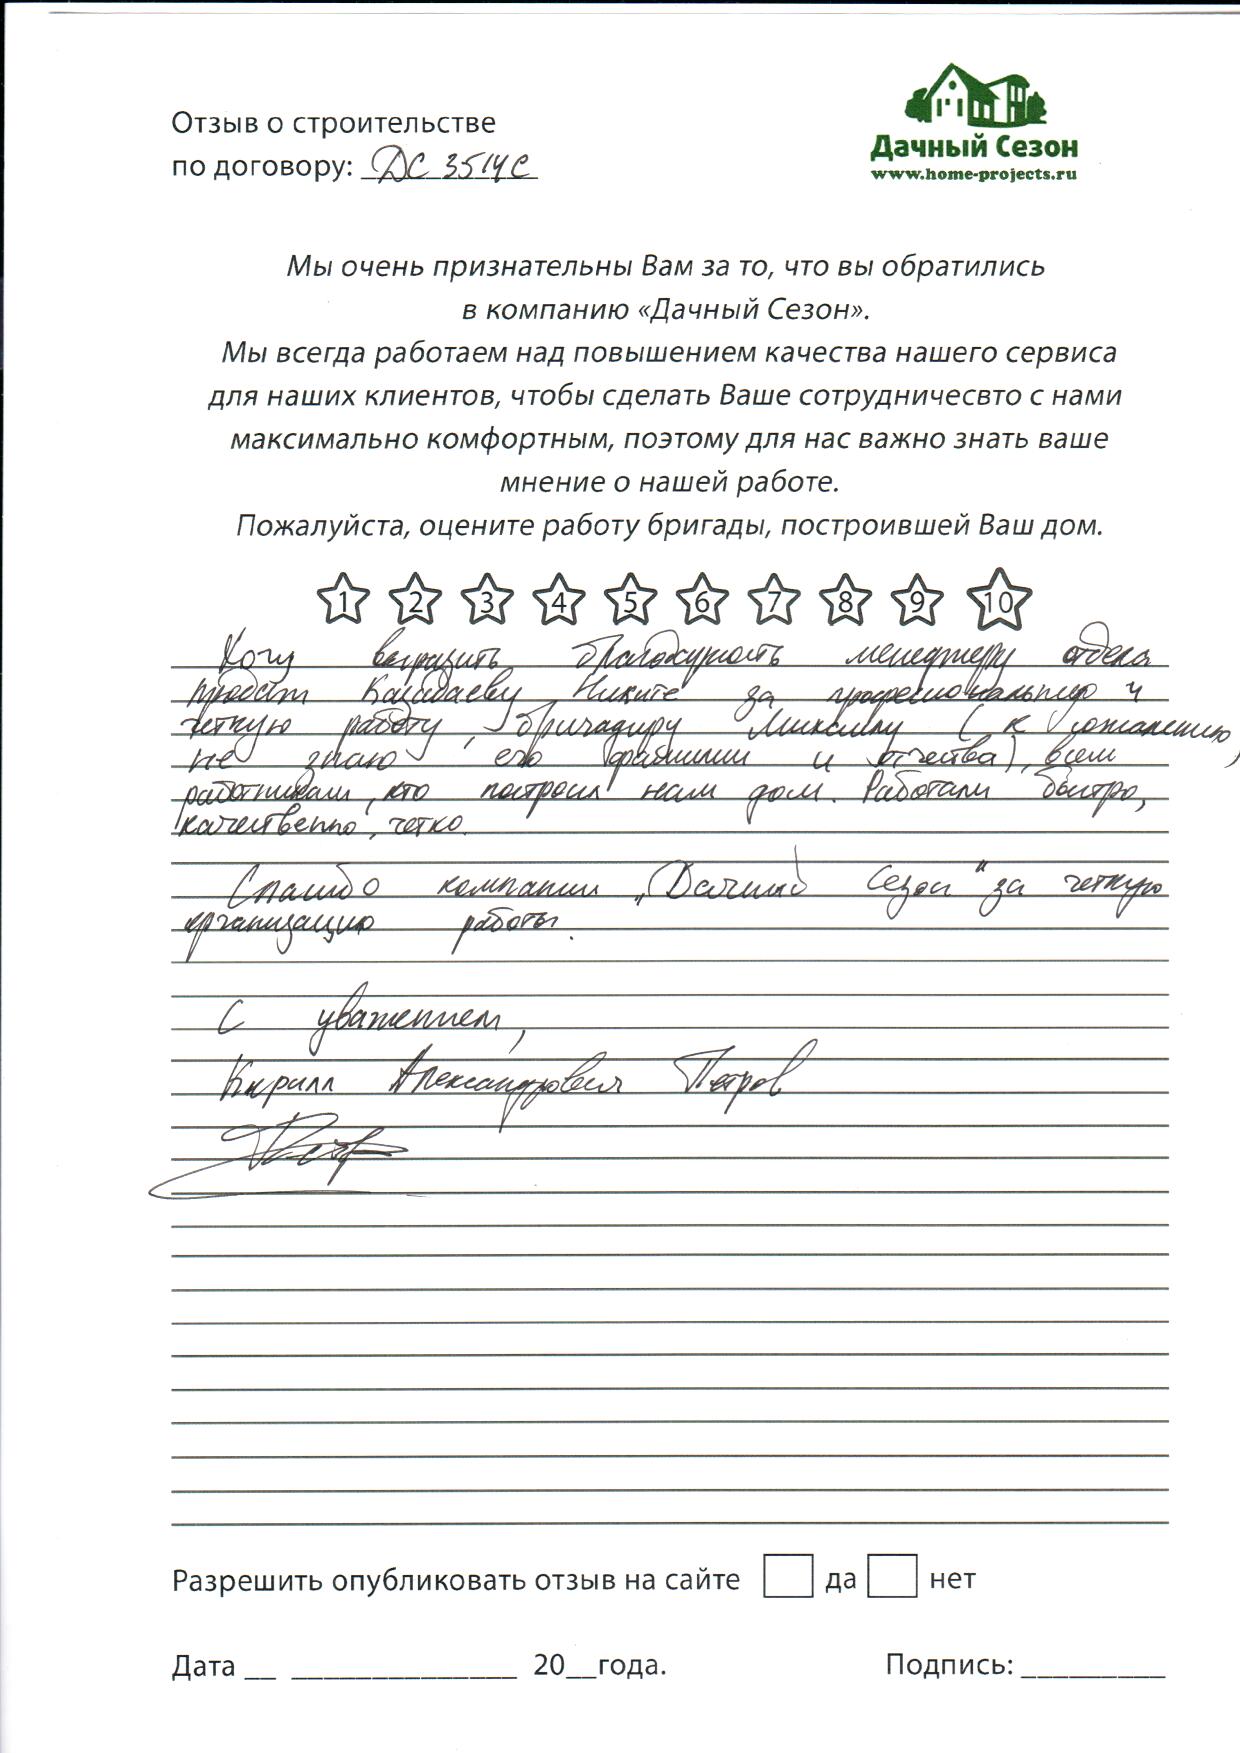 Отзыв о строительстве
по договору: ДС 3514С
Дачный Сезон
www.home-projects.ru
Мы очень признательны Вам за то, что вы обратились
в компанию «Дачный Сезон».
Мы всегда работаем над повышением качества нашего сервиса
для наших клиентов, чтобы сделать Ваше сотрудничесвто с нами
максимально комфортным, поэтому для нас важно знать ваше
мнение о нашей работе.
Пожалуйста, оцените работу бригады, построившей Ваш дом.
1 2 3 4 5 6 7 8 9 10
Хочу выразить благодарность менеджеру отдела
продаж Никите за профессиональную и
четкую работу, бригадиру Максиму (к сожалению,
не знаю его фамилии и отчества), всем
работникам, кто построил нам дом. Работали быстро,
качественно, четко.
Спасибо компании „Дачный Сезон“ за четкую
организацию работы.
С уважением,
Кирилл Александрович Петров
Разрешить опубликовать отзыв на сайте да нет
Дата __ ______________ 20__года. Подпись: _________